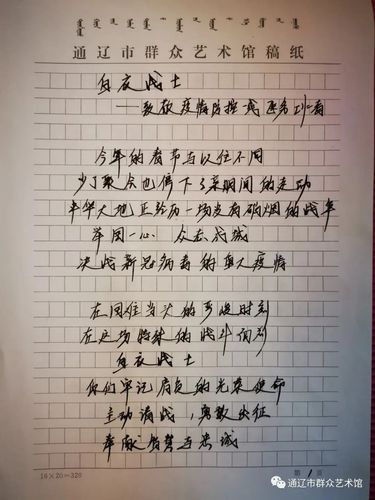 通辽市群众艺术馆稿纸
白衣战士
——致敬疫情防控战逆行者
今年的春节与以往不同
少了聚会也停下了亲朋间的走动
中华大地正经历一场没有硝烟的战争
举国一心 众志成城
决战新冠病毒的重大疫情
在国难当头的危险时刻
在这场特殊的战斗面前
白衣战士
你们牢记肩负的光荣使命
主动请战,勇敢出征
奉献 智慧与忠诚
16×20=320
第1页
通辽市群众艺术馆